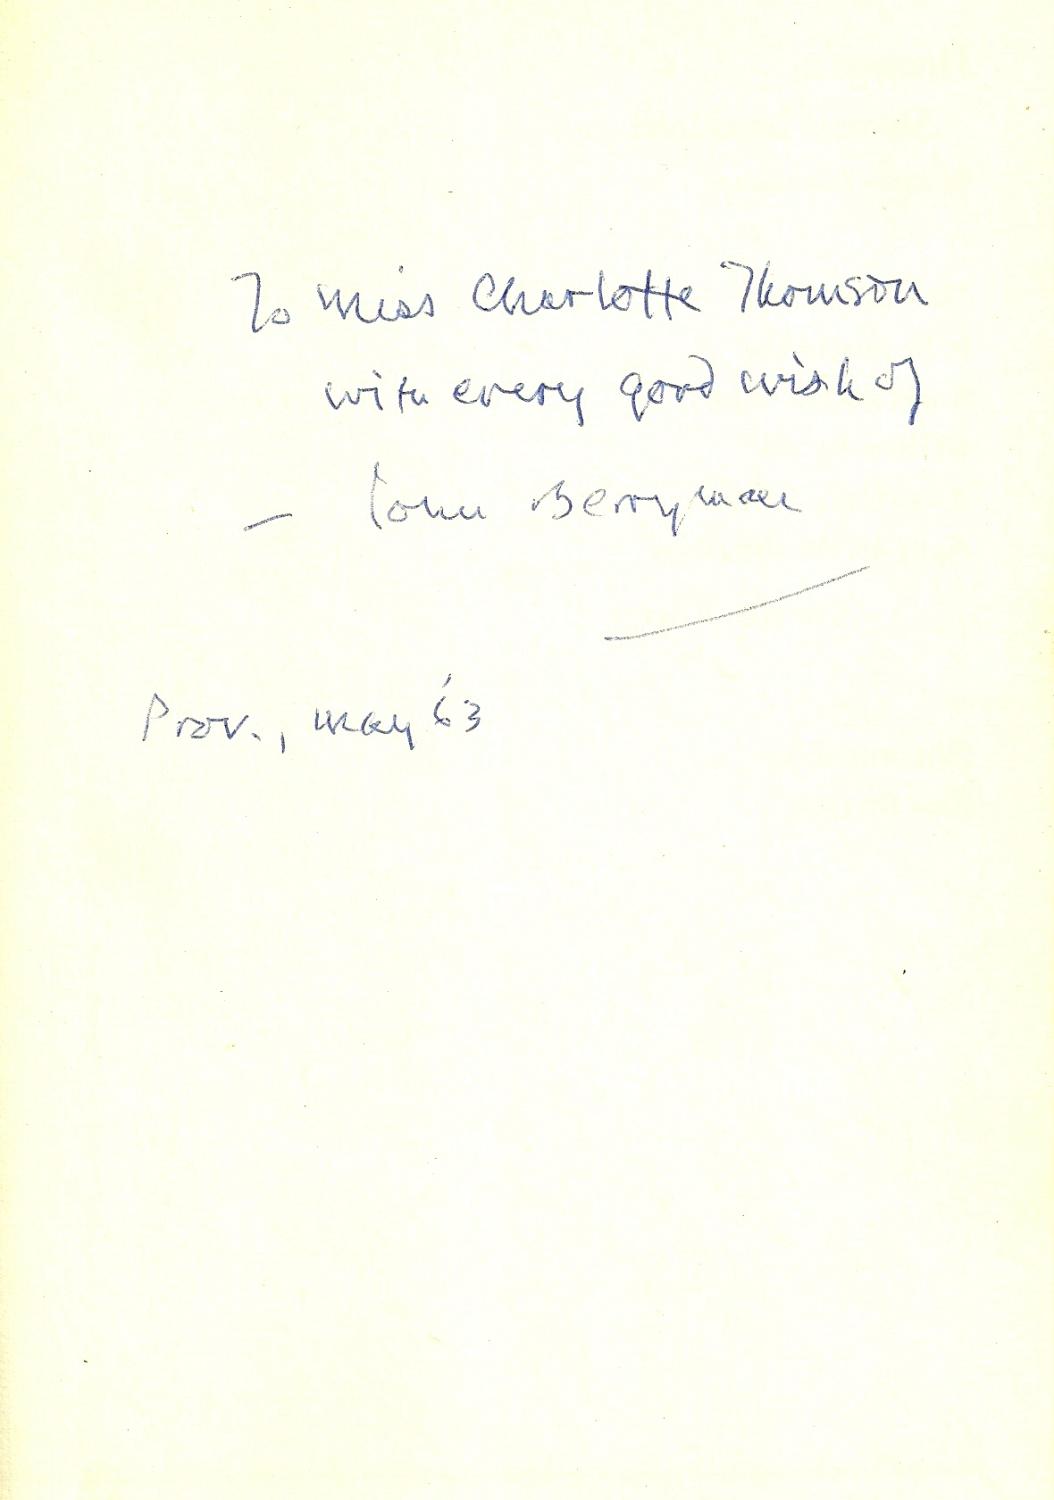 To Miss Charlotte Thomson
with every good wish of
— John Berryman
Prov., May '63